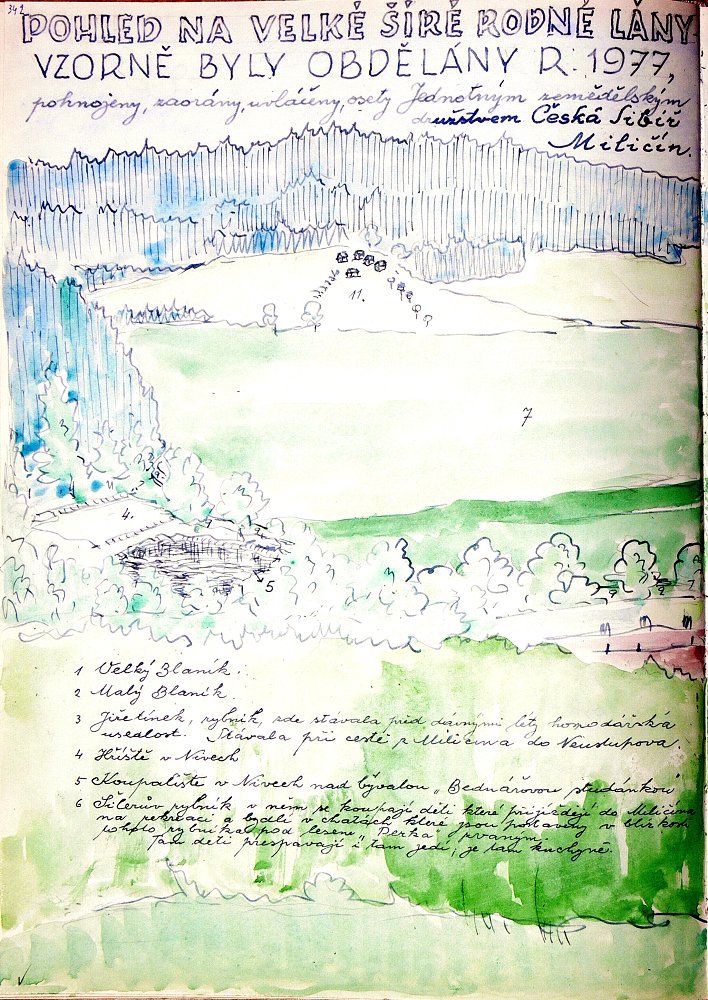 342
POHLED NA VELKÉ ŠIRÉ RODNÉ LÁNY
VZORNĚ BYLY OBDĚLÁNY R. 1977,
pohnojeny, zaorány, uvláčeny, osety Jednotným zemědělským
družstvem Česká Sibiř
Miličín.
11.
7
4.
5
1 Velký Blaník.
2 Malý Blaník.
3 Jiřetínek, rybník, zde stávala před dávnými léty hospodářská
usedlost. Stávala při cestě z Miličína do Neustupova.
4 Hřiště v Nivech
5 Koupaliště v Nivech nad bývalou "Bednářovou studánkou"
6 Šilerův rybník v něm se koupají děti které přijíždějí do Miličína
na rekreaci a bydlí v chatách které jsou postaveny v blízkosti
rybníka pod lesem "Perka" zvaným.
Tam děti přespávají i tam jedí, je tam kuchyně.